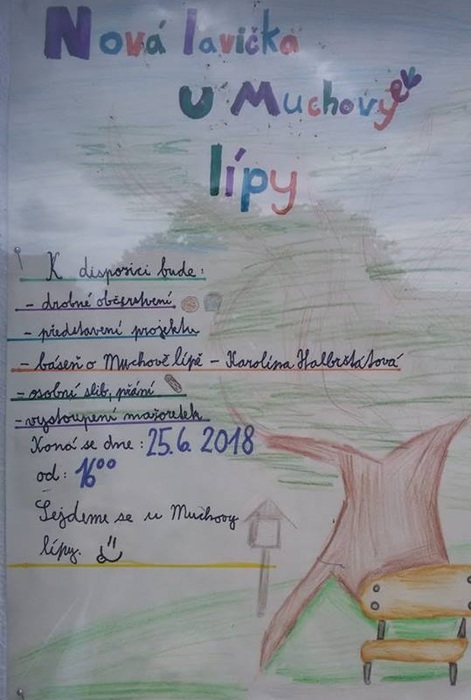 Nová lavička
U Muchovy
lípy
K dispozici bude:
- drobné občerstvení
- představení projektu
- báseň o Muchově lípě - Karolína Halbrštátová
- osobní slib, přání
- vystoupení mažoretek
Koná se dne: 25.6. 2018
od: 16⁰⁰
Sejdeme se u Muchovy
lípy.